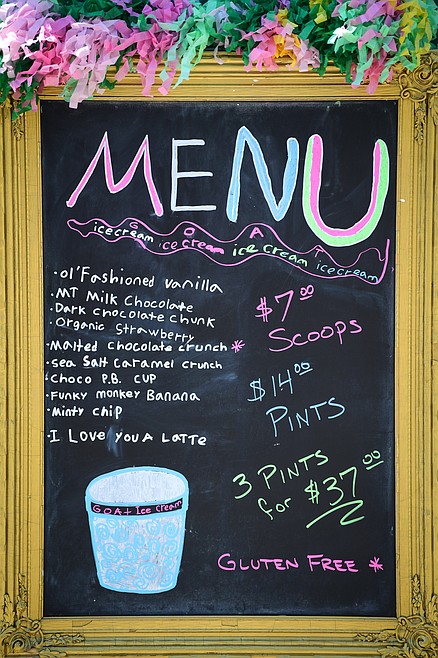 MENU
G O A T
icecream ice cream ice cream icecream
· ol' Fashioned vanilla
· MT Milk Chocolate
· Dark chocolate chunk
· Organic Strawberry
· Malted chocolate crunch *
· sea Salt caramel crunch
· choco P.B. CUP
· Funky monkey Banana
· Minty chip
· I Love you A Latte
$7.00
Scoops
$14.00
PINTS
3 PINTS
for $37.00
GOAt Ice Cream
GLUTEN FREE *